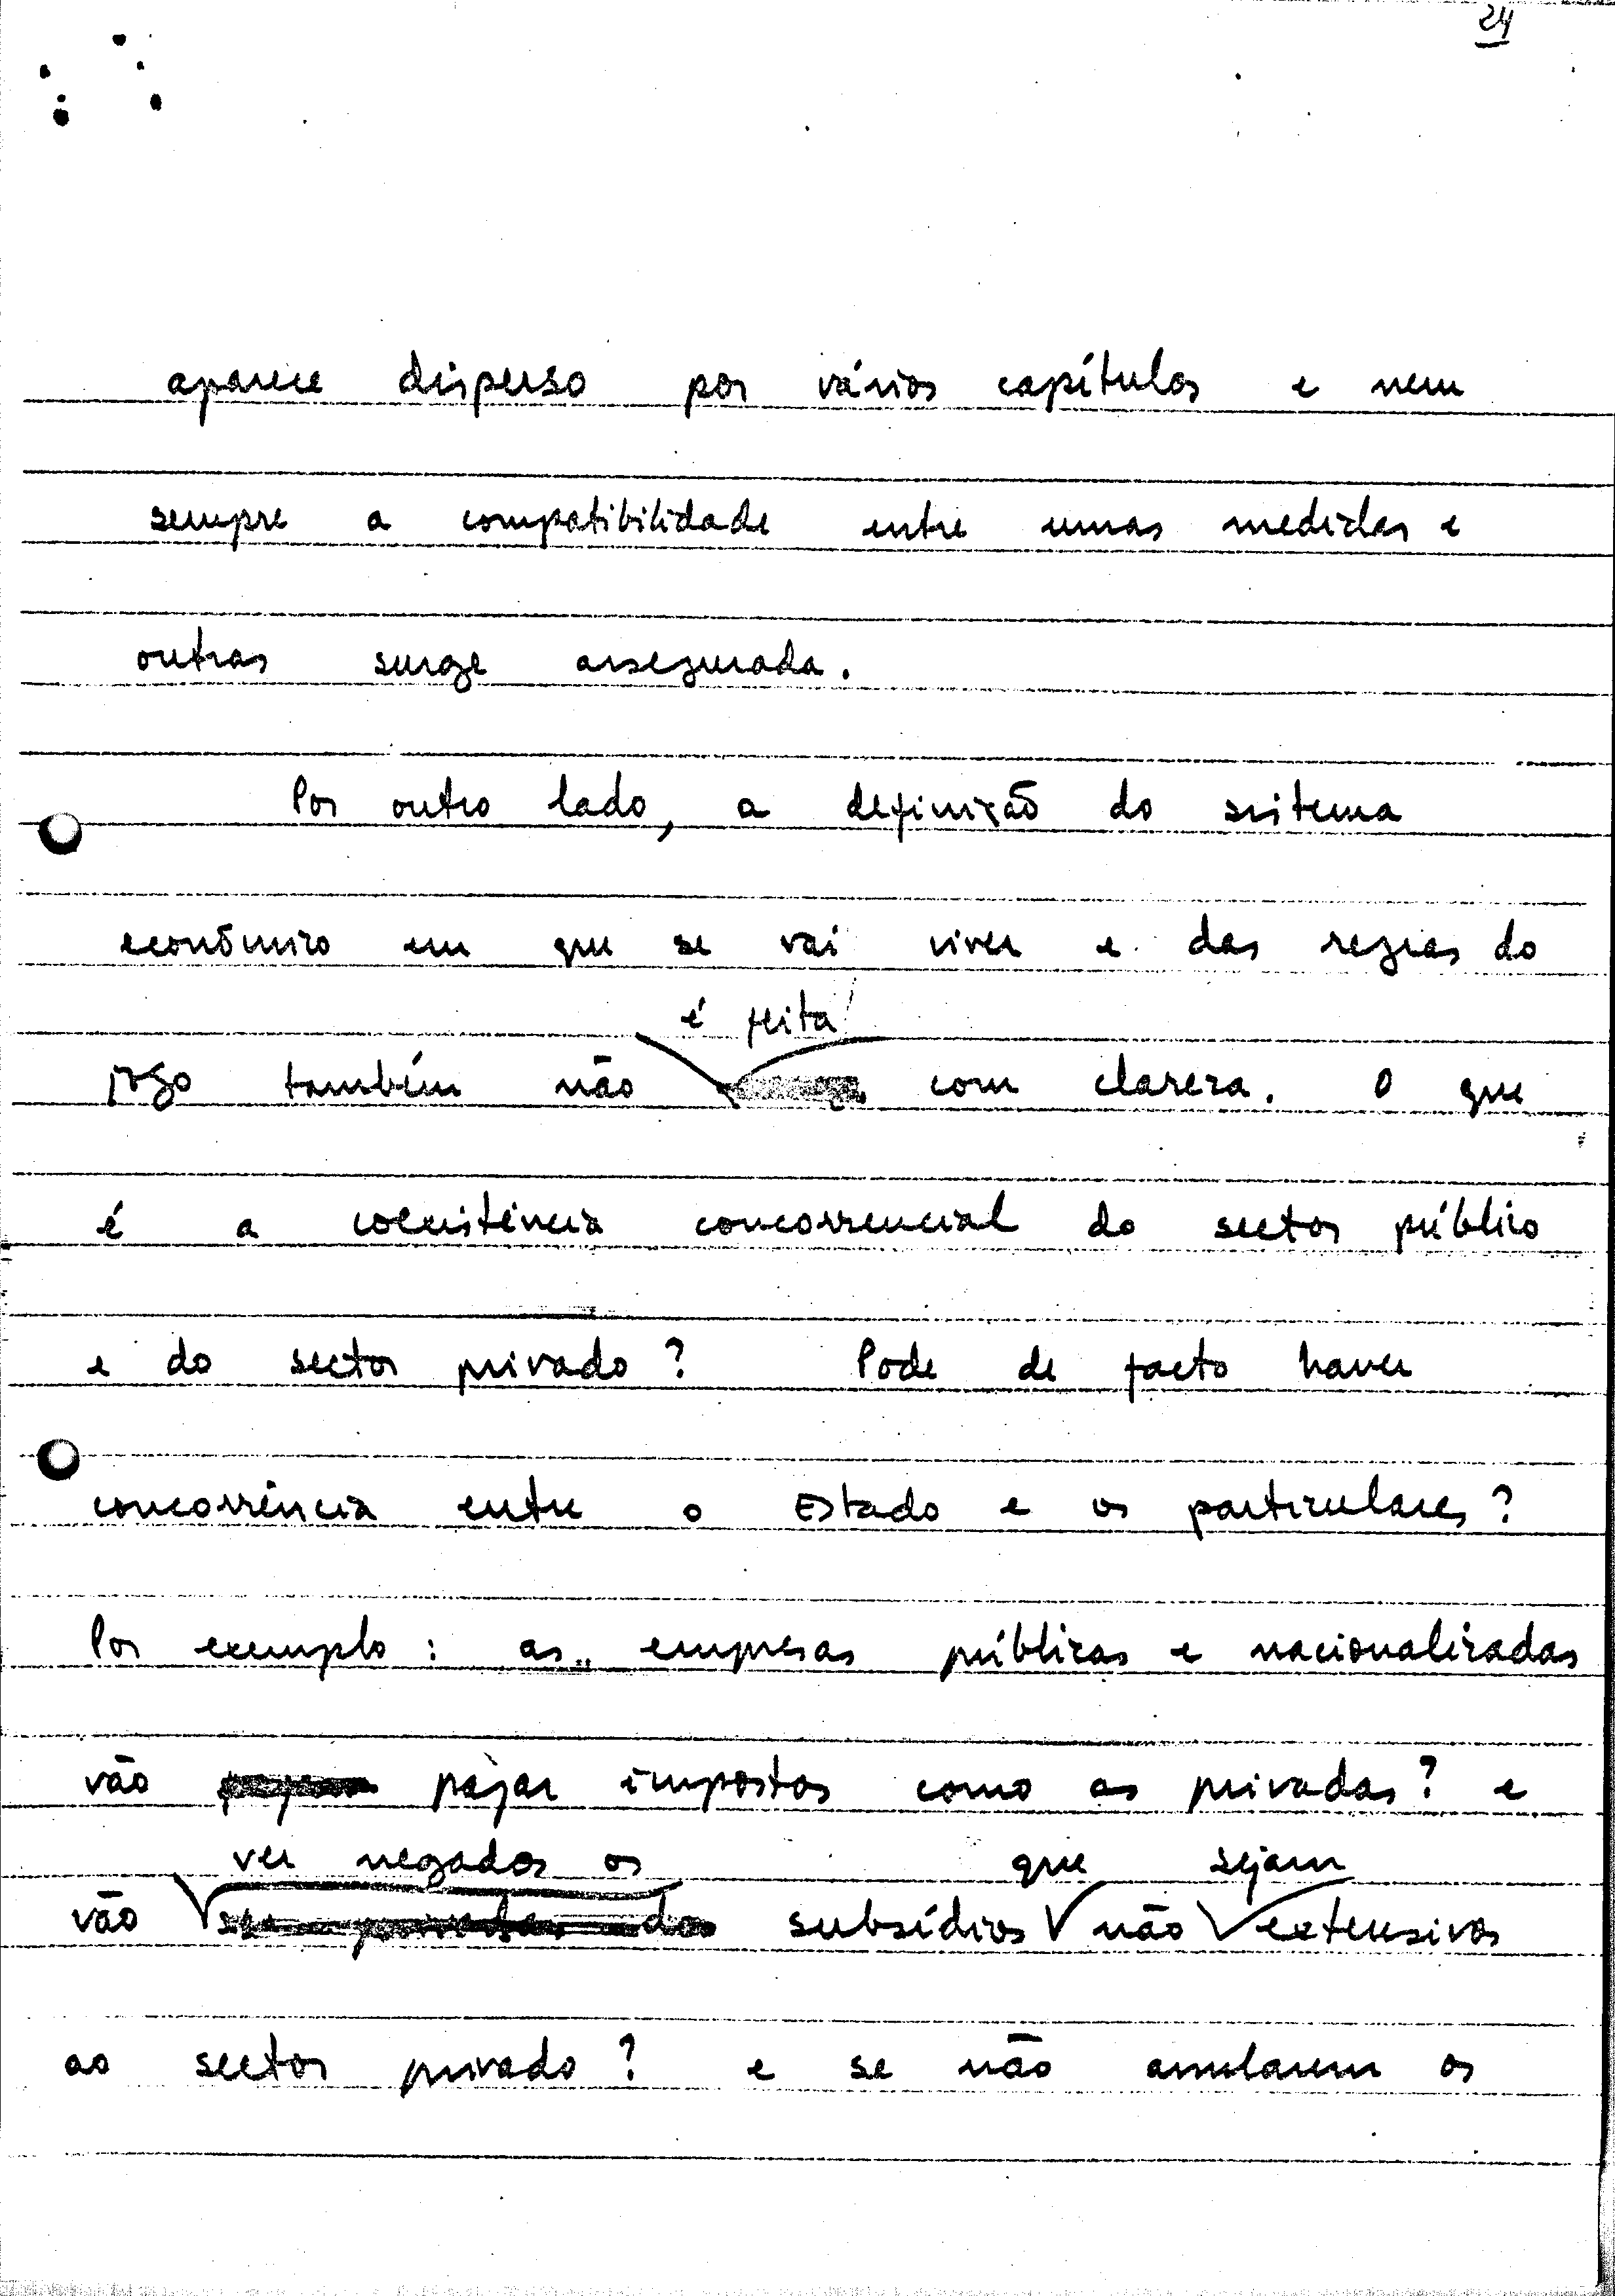 24
aparece disperso por vários capítulos e nem
sempre a compatibilidade entre umas medidas e
outras surge assegurada.
Por outro lado, a definição do sistema
económico em que se vai viver e das regras do
é feita
jogo também não com clareza. O que
é a coexistência concorrencial do sector público
e do sector privado? Pode de facto haver
concorrência entre o Estado e os particulares?
Por exemplo: as empresas públicas e nacionalizadas
vão pagar impostos como as privadas? e
ver negados os que sejam
vão subsídios não extensivos
ao sector privado? e se não anularem os